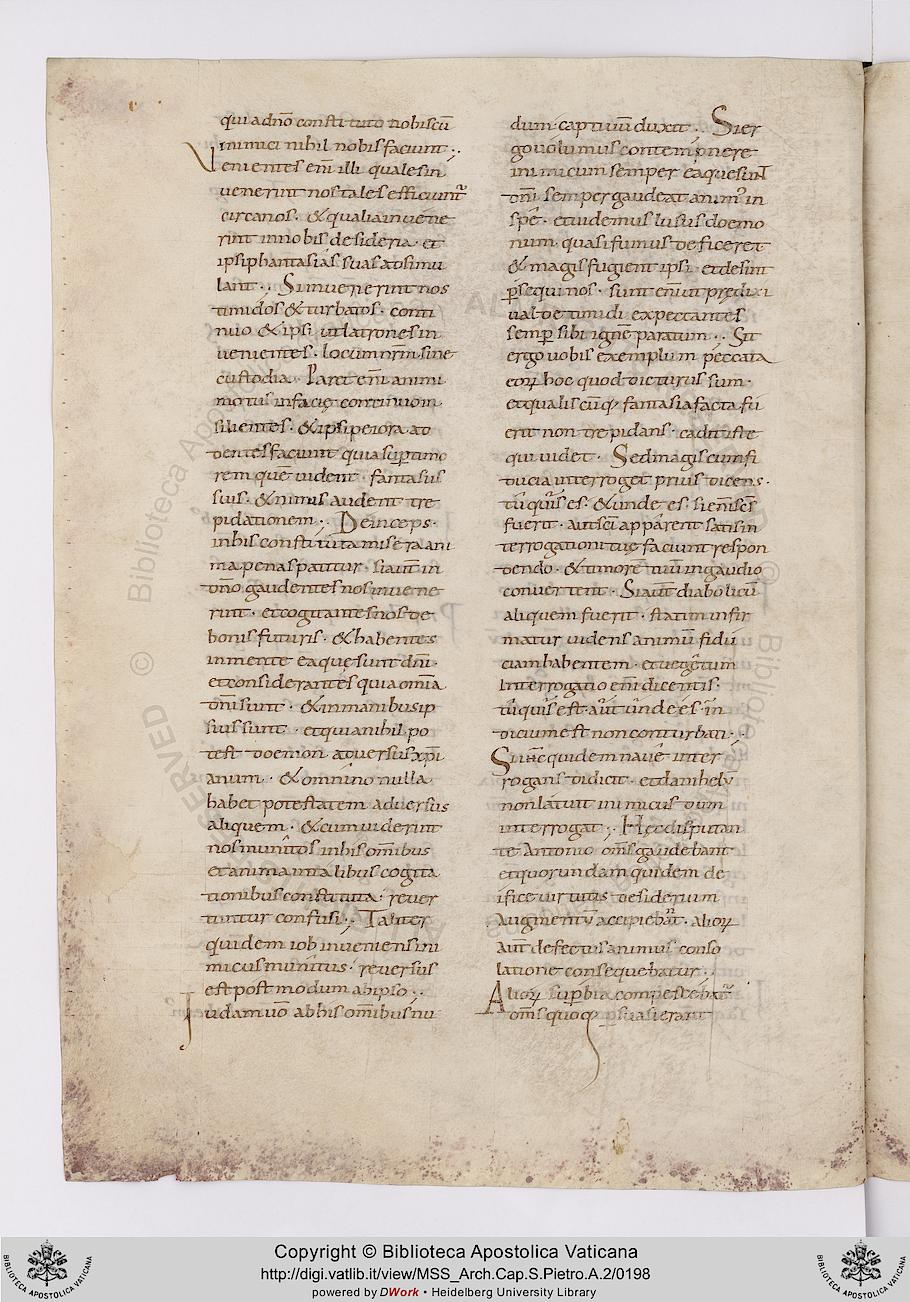 qui a dnō constituto nobiscū
inimici nihil nobis facıunt ..
Venientes enī illi quales in
uenerint nos tales efficiunt̄
circa nos · & qualia inuene
rint in nobis desideria · et
ipsi phantasias suas adsimu
lant .. Si inuenerint nos
timidos & turbatos · conti
nuo & ipsi ut latrones in
uenientes · locum nr̄m sine
custodia · Paret enī animi
motus in facię continuo in
silientes · & ipsi peiora ad
dentes faciunt quia sup̄ timo
rem quē uident · fantasiis
suis · & nimis audent tre
pidationem ·, Deinceps ·
in his constituta misera ani
ma penas patitur · si aut̄ in
dn̄o gaudentes nos inuene
rint · et cogitantes nos de
bonis futuris · & habentes
in mente ea que sunt dn̄i ·
et considerantes quia omīa
dn̄i sunt · & in manibus ip
sius sunt · et quia nihil po
test doemon aduersus xp̄i
anum · & omnino nulla
habet potestatem aduersus
aliquem · & cum uiderint
nos munitos in his om̄ibus
et anima in talibus cogita
tionibus constituta · reuer
tuntur confusi ·, Taliter
quidem iob inueniens ini
micus munitus · reuersus
est postmodum ab ipso ·.
Iudam uō ab his om̄ibus nu
dum captiuū duxit .. Si er
go uolumus contempnere
inimicum semper ea que sunt
dn̄i semper gaudeat anim̄ in
spē · et uidemus lusus doemo
num quasi fumus deficeret
& magis fugient ipsi et desint
p̄sequi nos · sunt enī ut prędixi
ualde timidi expectantes
semp̄ sibi ignē paratum .. Sit
ergo uobis exemplum peccata
eoꝝ hoc quod dicturus sum ·
et qualiscūq; fantasia facta fu
erit non trepidans · cadit iste
qui uidet · Sed magis cum fi
ducia interroget prius dicens ·
tū quis es · & unde es · si enī scēs
fuerit · aut sc̄i apparent satis in
terrogationi tuę faciunt respon
dendo · & timorē tuū in gaudio
conuertent · Si aut̄ diabolicū
aliquem fuerit · statim infir
matur uidens animū fidu
ciam habentem · et uegetum
Interrogatio enī dicentis ·
tū quis est aut unde es · in
dicium est non conturbati ·.
Sic iħc quidem nauē inter
rogans didicit · et danhelū
non latuit inimicus dum
interrogat ·, Hęc disputan
te Antonio om̄s gaudebant
et quorundam quidem de
ifice uirtutis desiderium
augmentū accipiebat̄ · alioꝝ
aut̄ defectus animus conso
latione consequebatur ·.
Alioꝝ sup̄bia compescebat̄
om̄s quoq; p suasi erant
Copyright © Biblioteca Apostolica Vaticana
http://digi.vatlib.it/view/MSS_Arch.Cap.S.Pietro.A.2/0198
powered by DWork • Heidelberg University Library